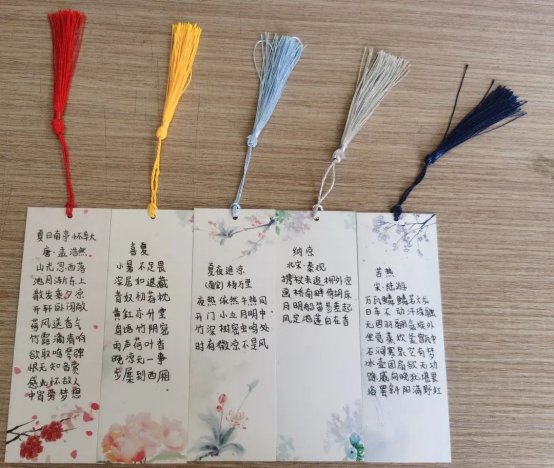 夏日南亭怀辛大
唐·孟浩然
山光忽西落
池月渐东上
散发乘夕凉
开轩卧闲敞
荷风送香气
竹露滴清响
欲取鸣琴弹
恨无知音赏
感此怀故人
中宵劳梦想
喜夏
小暑不足畏
深居如退藏
青奴初荐枕
黄妳亦升堂
鸟语竹阴密
雨声荷叶香
晚凉无一事
步屧到西厢
夏夜追凉
(南宋)杨万里
夜热依然午热同
开门小立月明中
竹深树密虫鸣处
时有微凉不是风
纳凉
北宋·秦观
携杖来追柳外凉
画桥南畔倚胡床
月明船笛参差起
风定池莲自在香
苦热
宋·陆游
万瓦鳞鳞若火龙
日车不动汗珠融
无因羽翮氛埃外
坐觉蒸炊釜甑中
石涧寒泉空有梦
冰壶团扇欲无功
余威向晚犹堪畏
浴罢斜阳满野红